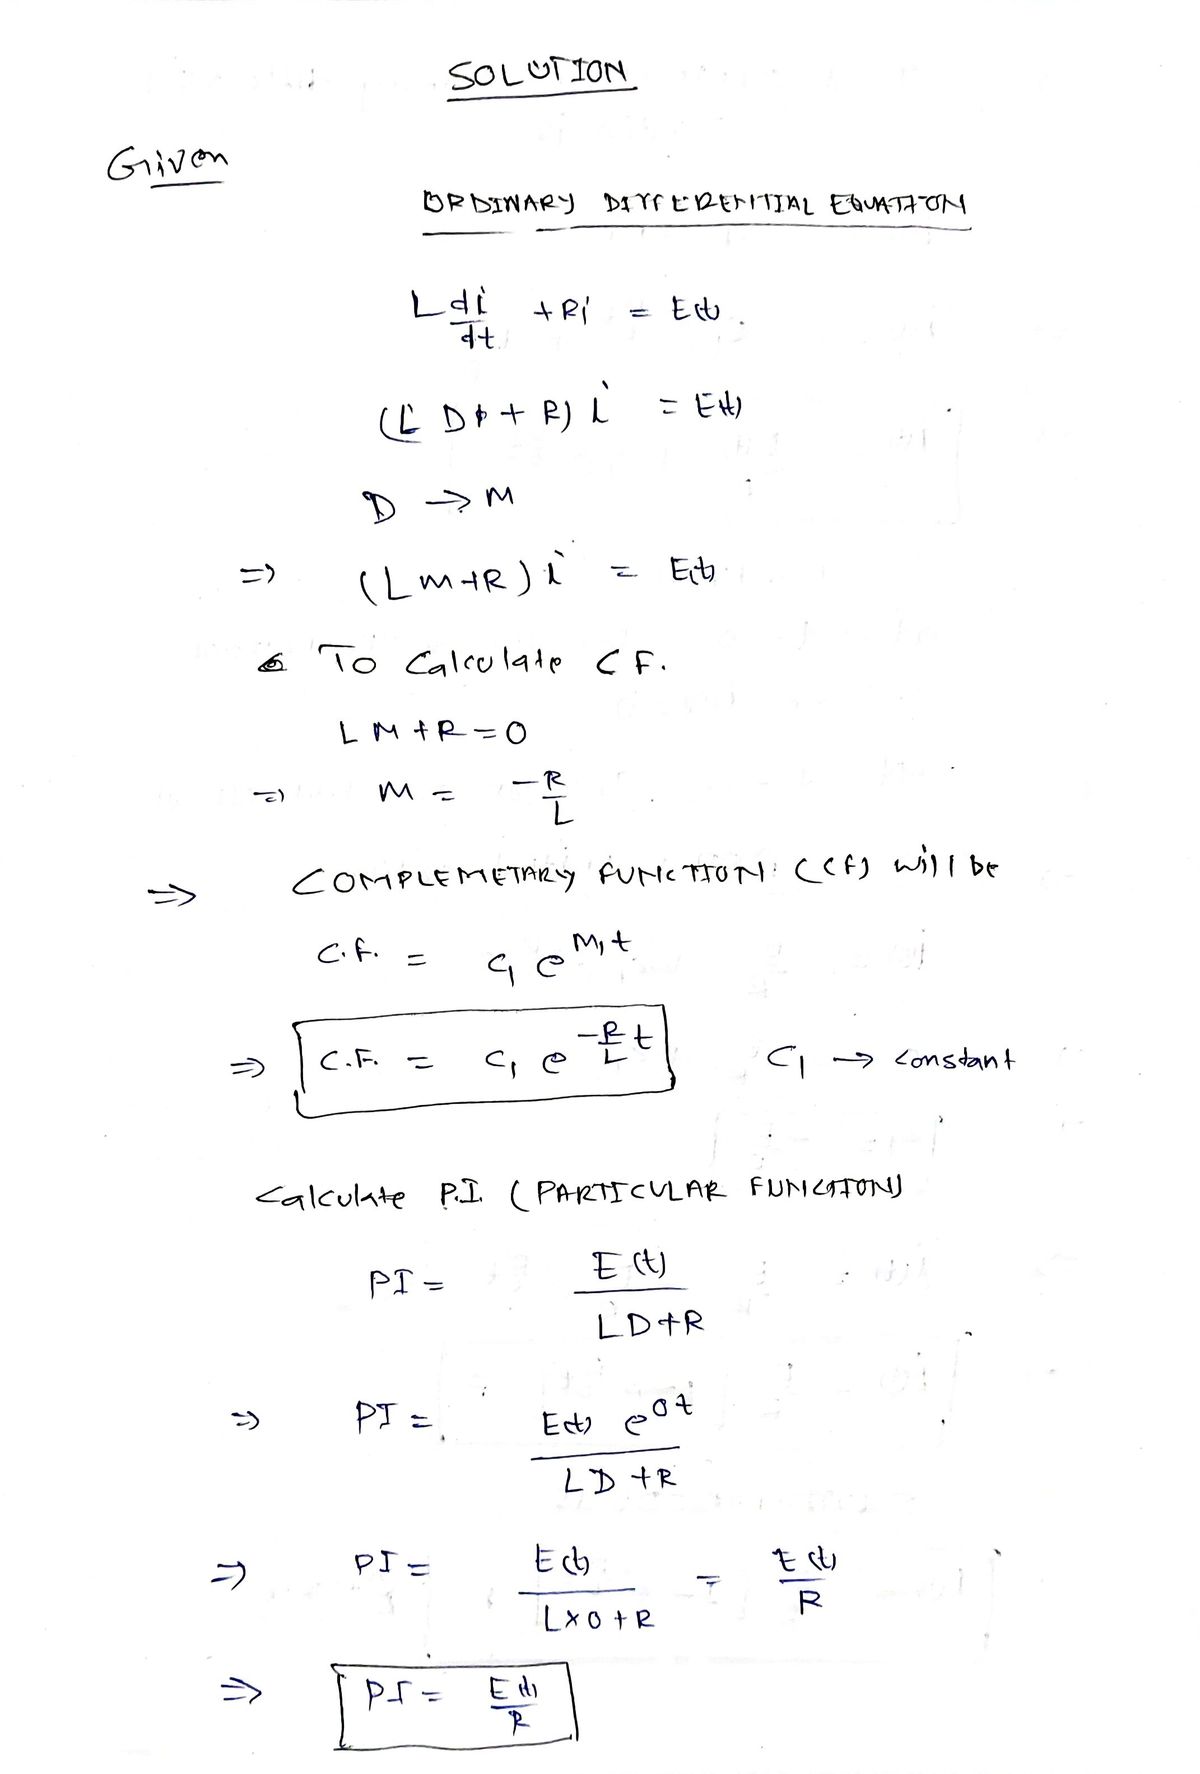 SOLUTION
Given
ORDINARY DIFFERENTIAL EQUATION
L di/dt + Ri = E(t).
(L D + R) i = E(t)
D → M
⇒ (Lm+R) i = E(t)
To Calculate CF.
LM+R=0
⇒ M = -R/L
⇒ COMPLEMETARY FUNCTION (CF) will be
C.F. = C₁ e^M₁t
⇒ C.F. = C₁ e^-R/L t C₁ → constant
Calculate P.I. (PARTICULAR FUNCTION)
PI = E(t) / LD+R
⇒ PI = E(t) e^0t / LD+R
⇒ PI = E(t) / L×0+R = E(t)/R
⇒ PI = E(t)/R